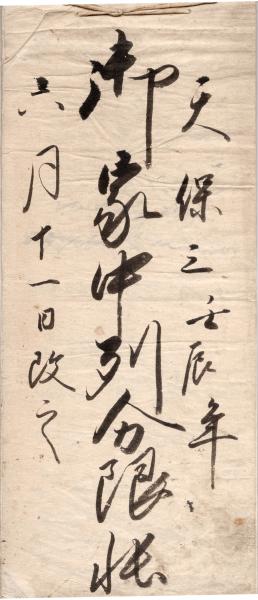 天保三壬辰年
御家中列分限帳
六月十一日改之